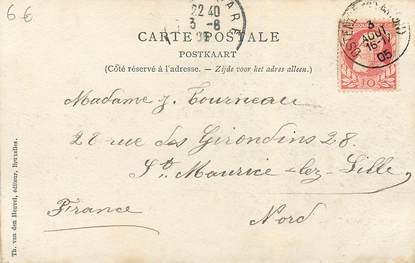 66
22 40
3-8
05
GARE
OSTENDE
3
AOUT
16-17
05
10
CARTE POSTALE
POSTKAART
(Côté réservé à l'adresse. — Zijde voor het adres alleen.)
Madame J. Tourneau
28 rue des Girondins 28.
St Maurice-lez-Lille
France
Nord
Th. van den Heuvel, éditeur, Bruxelles.